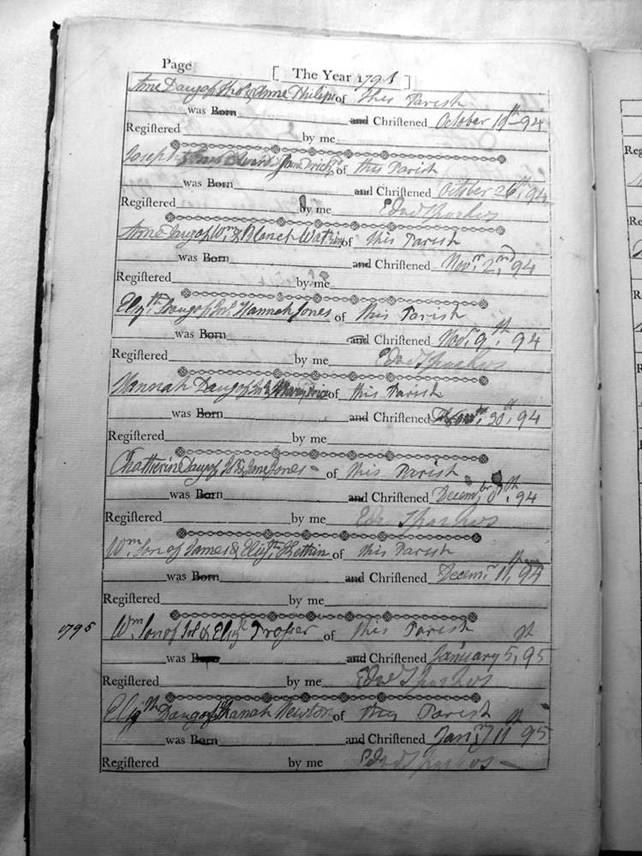 Page [ The Year 1794 ]
Anne Daug of Thos & Anne Philips of this Parish
was Born and Christened October 19th 94
Registered by me
Joseph of this Parish
was Born and Christened October 26th, 94
Registered by me Edwd Sparkes
Anne Daug of Wm & Blanch Watkin of this Parish
was Born and Christened Novr 2nd, 94
Registered by me
Elizth Daug of Hannah Jones of this Parish
was Born and Christened Novr 9th, 94
Registered by me Edwd Sparkes
Hannah Daug of & Mary Price of this Parish
was Born and Christened 30th, 94
Registered by me
Chatherine Daug of & Jane Jones of this Parish
was Born and Christened Decemr 94
Registered by me Sparkes
Wm Son of James & Elizth of this Parish
was Born and Christened Decemr 11th, 94
Registered by me
1795 Wm Son of & Eliz Prosser of this Parish
was Born and Christened January 5, 95
Registered by me Edwd Sparkes
Elizth Daug of Hanah Newton of this Parish
was Born and Christened Jany 11th 95
Registered by me Edwd Sparkes